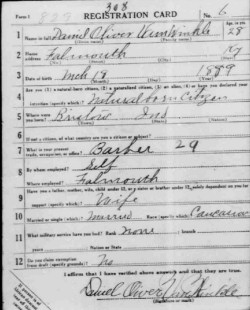 308
Form 1 829 REGISTRATION CARD No. 6
1 Name in full Daniel Oliver Age, in yrs. 28
(Given name) (Family name)
2 Home address Falmouth
3 Date of birth Mch 18 1889
(Month) (Day) (Year)
4 Are you (1) a natural-born citizen, (2) a naturalized citizen, (3) an alien, (4) or have you declared your
intention (specify which)? Natural born Citizen
5 Where were you born? Ind
6 If not a citizen, of what country are you a citizen or subject?
7 What is your present trade, occupation, or office? Barber 29
8 By whom employed? Self
Where employed? Falmouth
9 Have you a father, mother, wife, child under 12, or a sister or brother under 12, solely dependent on you for
support (specify which)? Wife
10 Married or single (which)? Married Race (specify which)? Caucasian
11 What military service have you had? Rank None ; branch
years Nation or State
12 Do you claim exemption from draft (specify grounds)? No
I affirm that I have verified above answers and that they are true.
Daniel Oliver